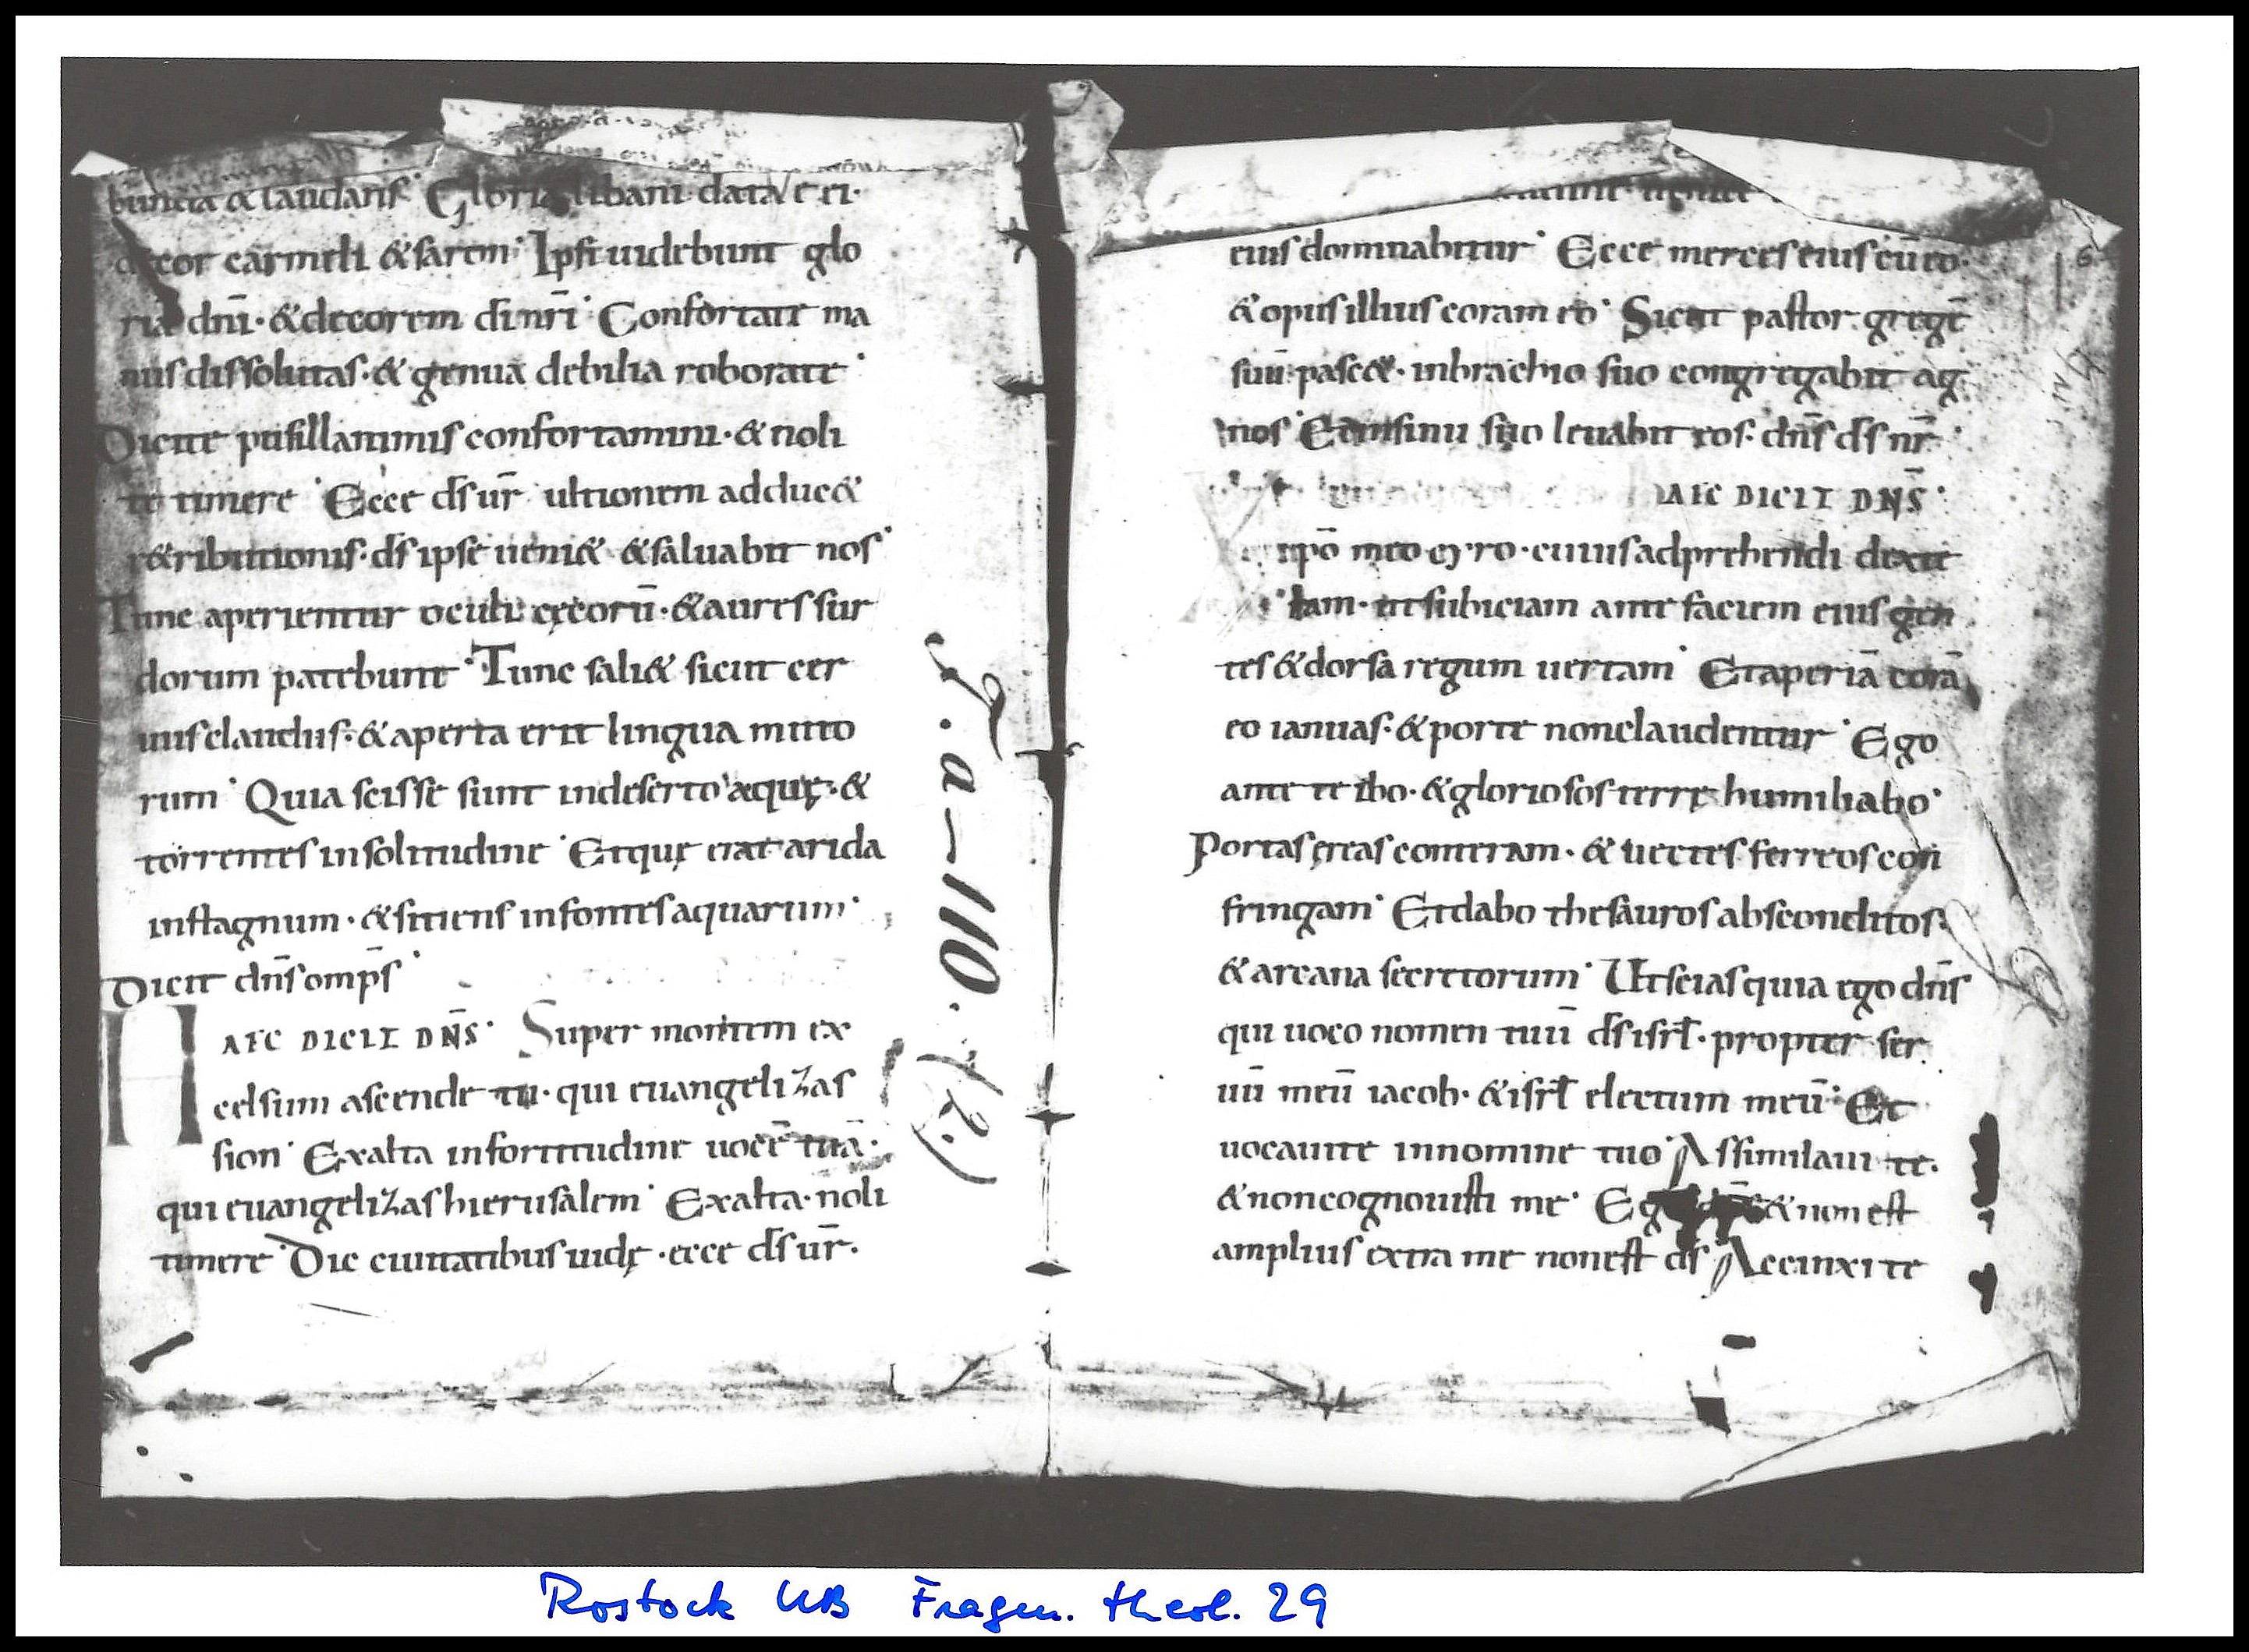 bunda & laudans· Gloria libani data ē ei·
decor carmeli & saron· Ipsi uidebunt glo
ria dn̄i· & decorem di nr̄i· Confortate ma
nus dissolutas· & genua debilia roborate·
Dicite pusillanimis confortamini· & noli
te timere· Ecce ds ur̄ ultionem adduc&
r&ributionis· ds ipse ueni& & saluabit nos·
Tunc aperientur oculi cęcorū· & aures sur
dorum patebunt· Tunc sali& sicut cer
uus claudus· & aperta erit lingua muto
rum· Quia scisse sunt in deserto aquę· &
torrentes in solitudine· Et quę erat arida
in stagnum· & sitiens in fontes aquarum·
Dicit dn̄s omp̄s·
HAEC DICIT DN̄S· Super montem ex
celsum ascende tu· qui euangelizas
sion· Exalta in fortitudine uocē tuā·
qui euangelizas hierusalem· Exalta· noli
timere· Dic ciuitatibus iudę· ecce ds ur̄·
T. a–110. (2.)
6
eius dominabitur· Ecce merces eius cū eo·
& opus illius coram eo· Sicut pastor gregē
suū pasc&· in brachio suo congregabit ag
nos· Et in sinu suo leuabit eos· dn̄s ds nr̄·
AEC DICIT DN̄S·
xpō meo cyro· cuius adprehendi dexte
ram· ut subiciam ante faciem eius gen
tes & dorsa regum uertam· Et aperiā corā
eo ianuas· & porte non claudentur· Ego
ante te ibo· & gloriosos terrę humiliabo·
Portas ęreas conteram· & uectes ferreos con
fringam· Et dabo thesauros absconditos·
& arcana secretorum· Ut scias quia ego dn̄s
qui uoco nomen tuū ds isrł· propter ser
uū meū iacob· & isrł electum meū· Et
uocaui te in nomine tuo· Assimilaui te·
& non cognouisti me· Ego dn̄s & non est
amplius extra me non est ds· Accinxi te
Rostock UB Fragm. theol. 29